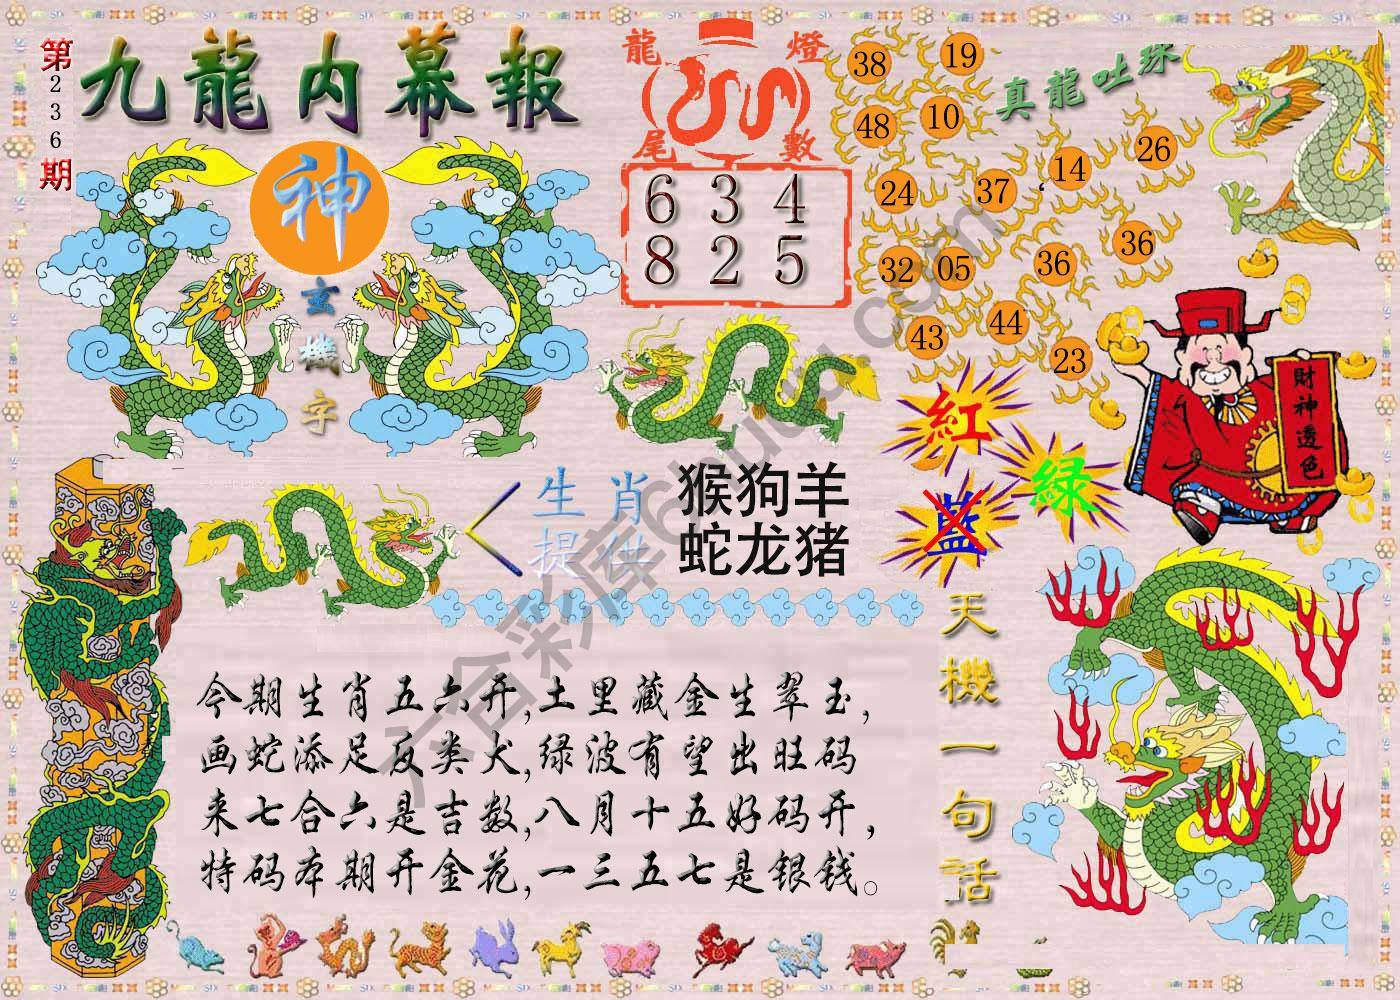 第236期
九龍内幕報
神
玄機字
龍燈尾數
6 3 4
8 2 5
真龍吐珠
38 19
48 10
24 37 14 26
32 05 36 36
43 44 23
財神透色
紅
绿
蓝
生肖提供
猴狗羊
蛇龙猪
今期生肖五六开,土里藏金生翠玉,
画蛇添足反类犬,绿波有望出旺码
来七合六是吉数,八月十五好码开,
特码本期开金花,一三五七是银钱。
天機一句話
六合彩库6huu.com